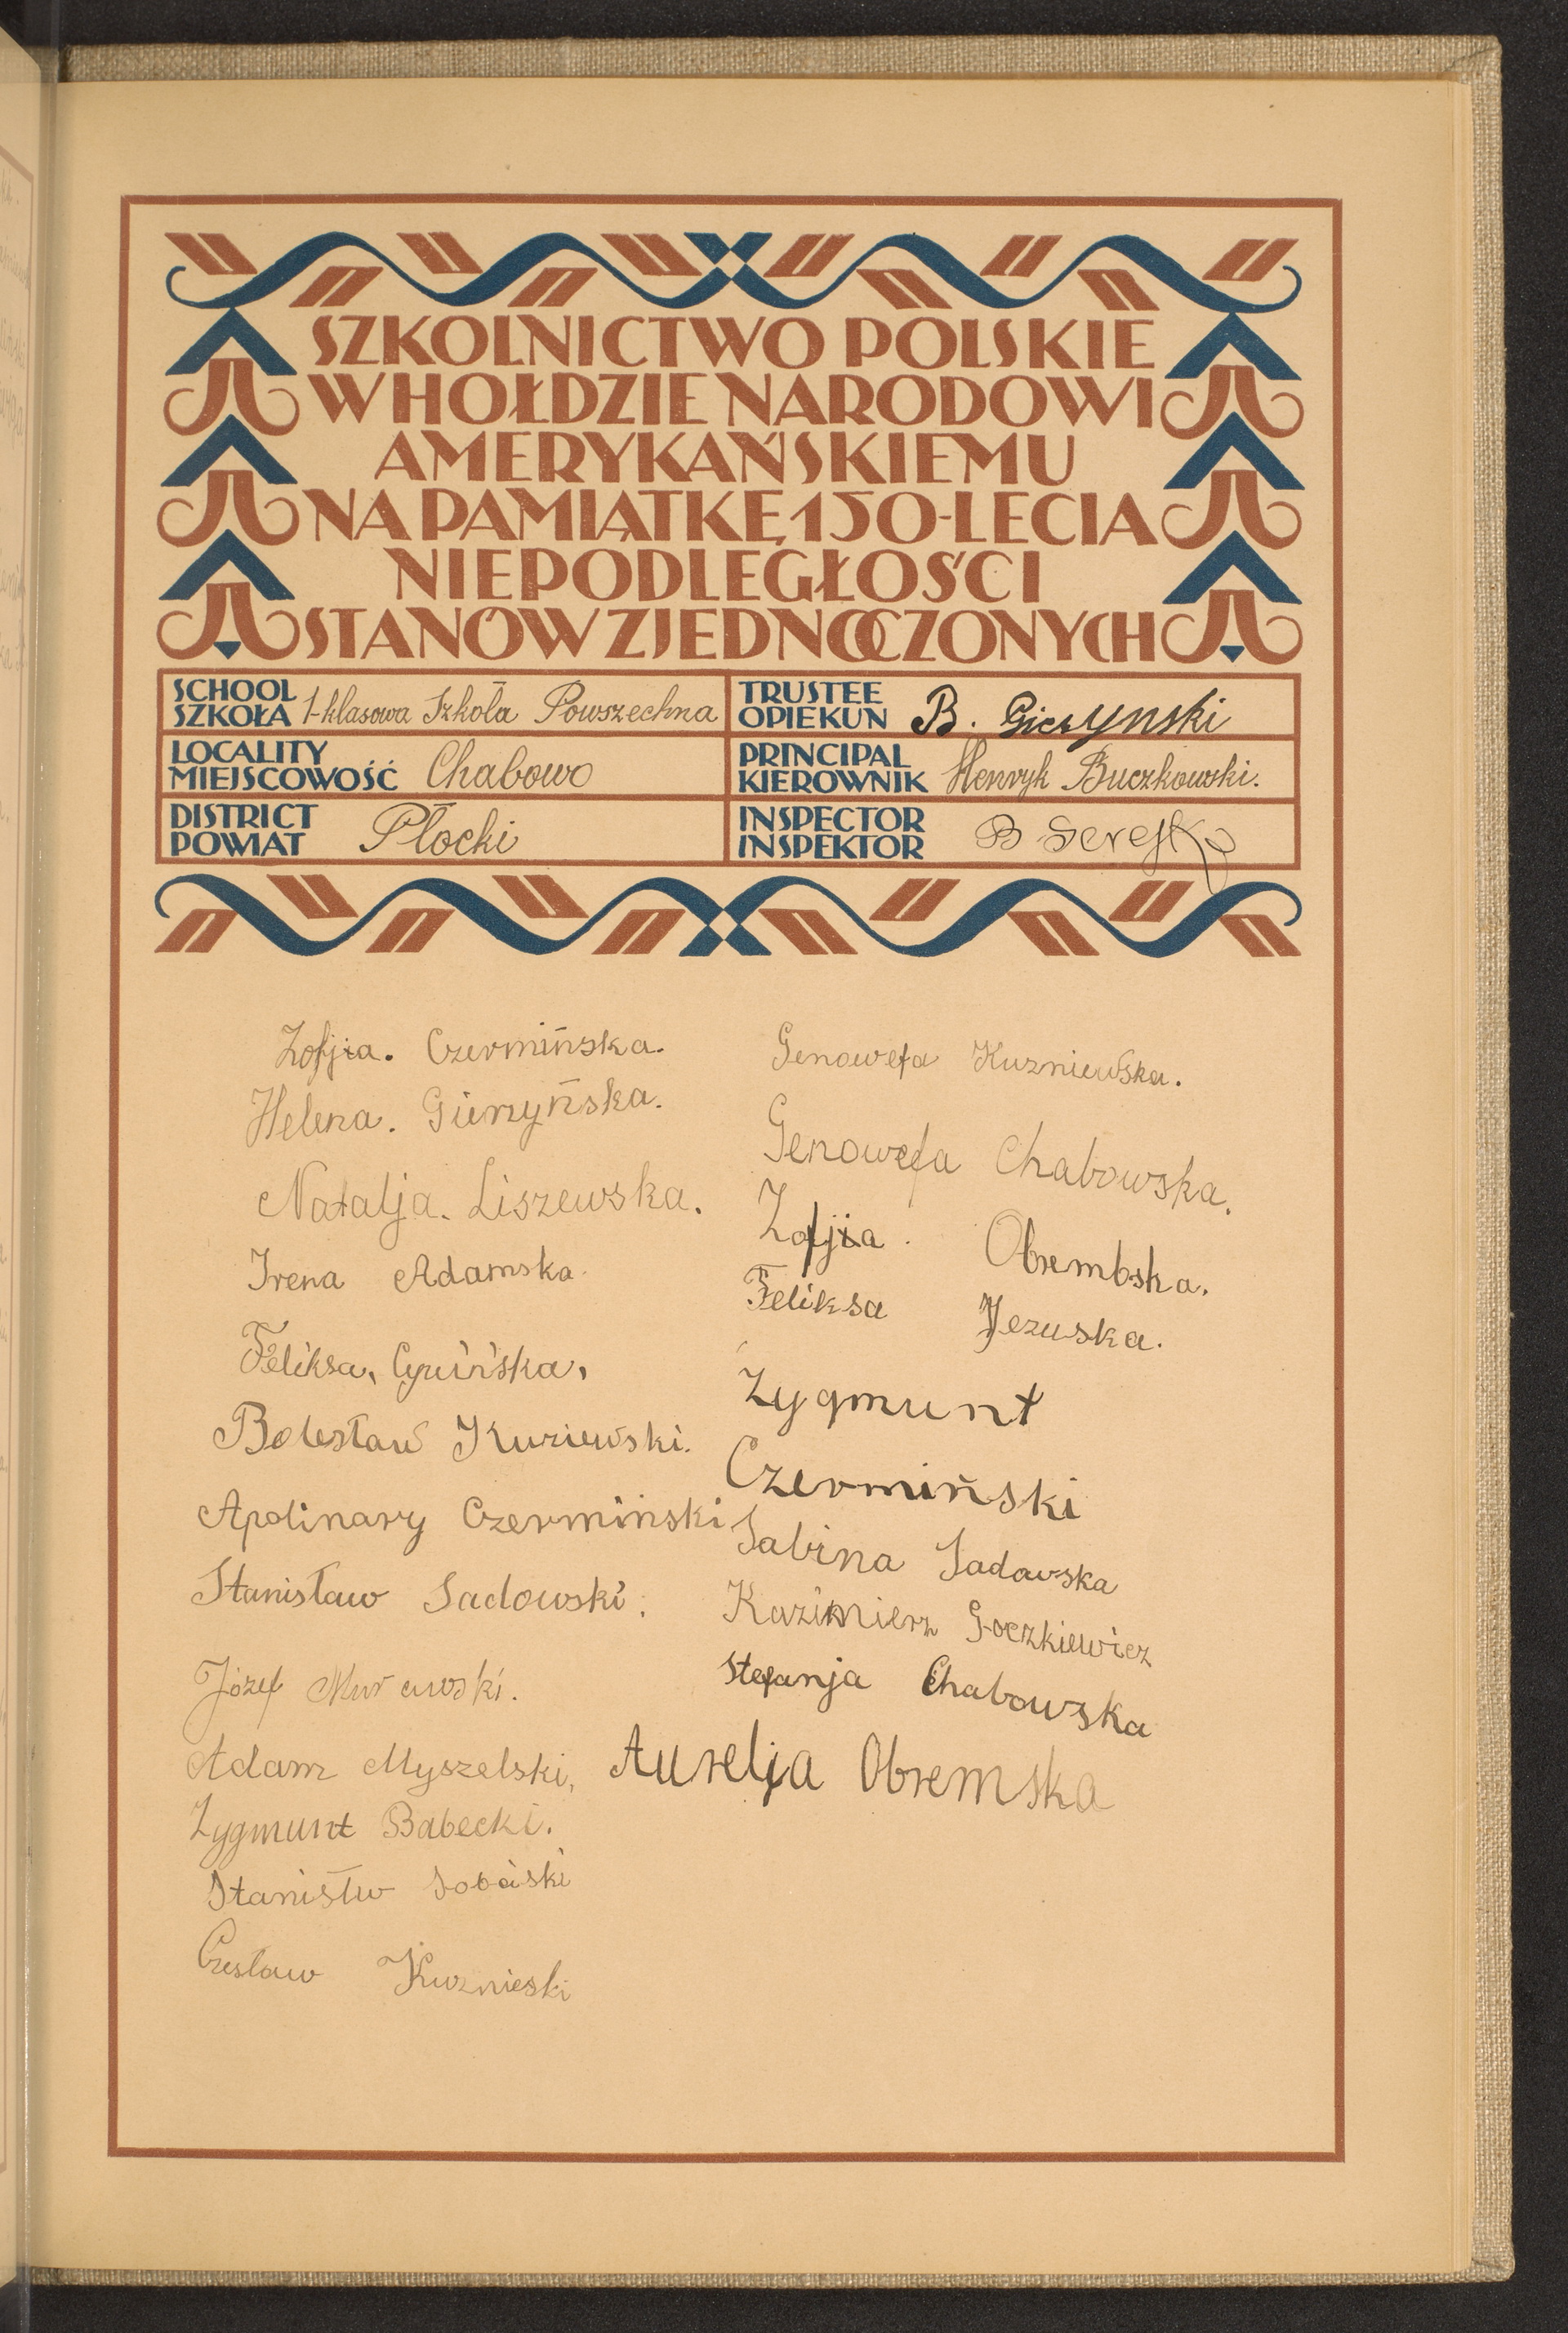 SZKOLNICTWO POLSKIE
W HOŁDZIE NARODOWI
AMERYKAŃSKIEMU
NA PAMIĄTKĘ 150-LECIA
NIEPODLEGŁOŚCI
STANÓW ZJEDNOCZONYCH
SCHOOL
SZKOŁA 1-klasowa Szkoła Powszechna
TRUSTEE
OPIEKUN B. Gierzynski
LOCALITY
MIEJSCOWOŚĆ Chabowo
PRINCIPAL
KIEROWNIK Henryk Buczkowski.
DISTRICT
POWIAT Płocki
INSPECTOR
INSPEKTOR B
Zofjia. Czermińska.
Helena. Gierzyńska.
Natalja. Liszewska.
Irena Adamska.
Feliksa,
Bolesław Kuziewski.
Apolinary Czermiński
Stanisław Sadowski.
Józef
Adam Myszelski,
Zygmunt Babecki.
Stanisłw
Czesław Kuznieski
Genowefa Kuzniewska.
Genowefa Chabowska.
Zofjia. Obrembska.
Feliksa Jezuska.
Zygmunt
Czermiński
Sabina Sadowska
Kazimierz Goczkiewicz
Stefanja Chabowska
Aurelja Obremska